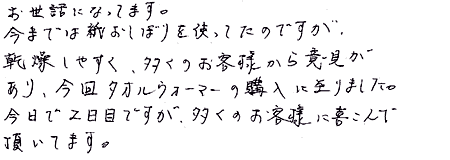 お世話になってます。
今までは紙おしぼりを使ってたのですが、
乾燥しやすく、多くのお客様から意見が
あり、今回タオルウォーマーの購入に至りました。
今日で2日目ですが、多くのお客様に喜こんで
頂いてます。